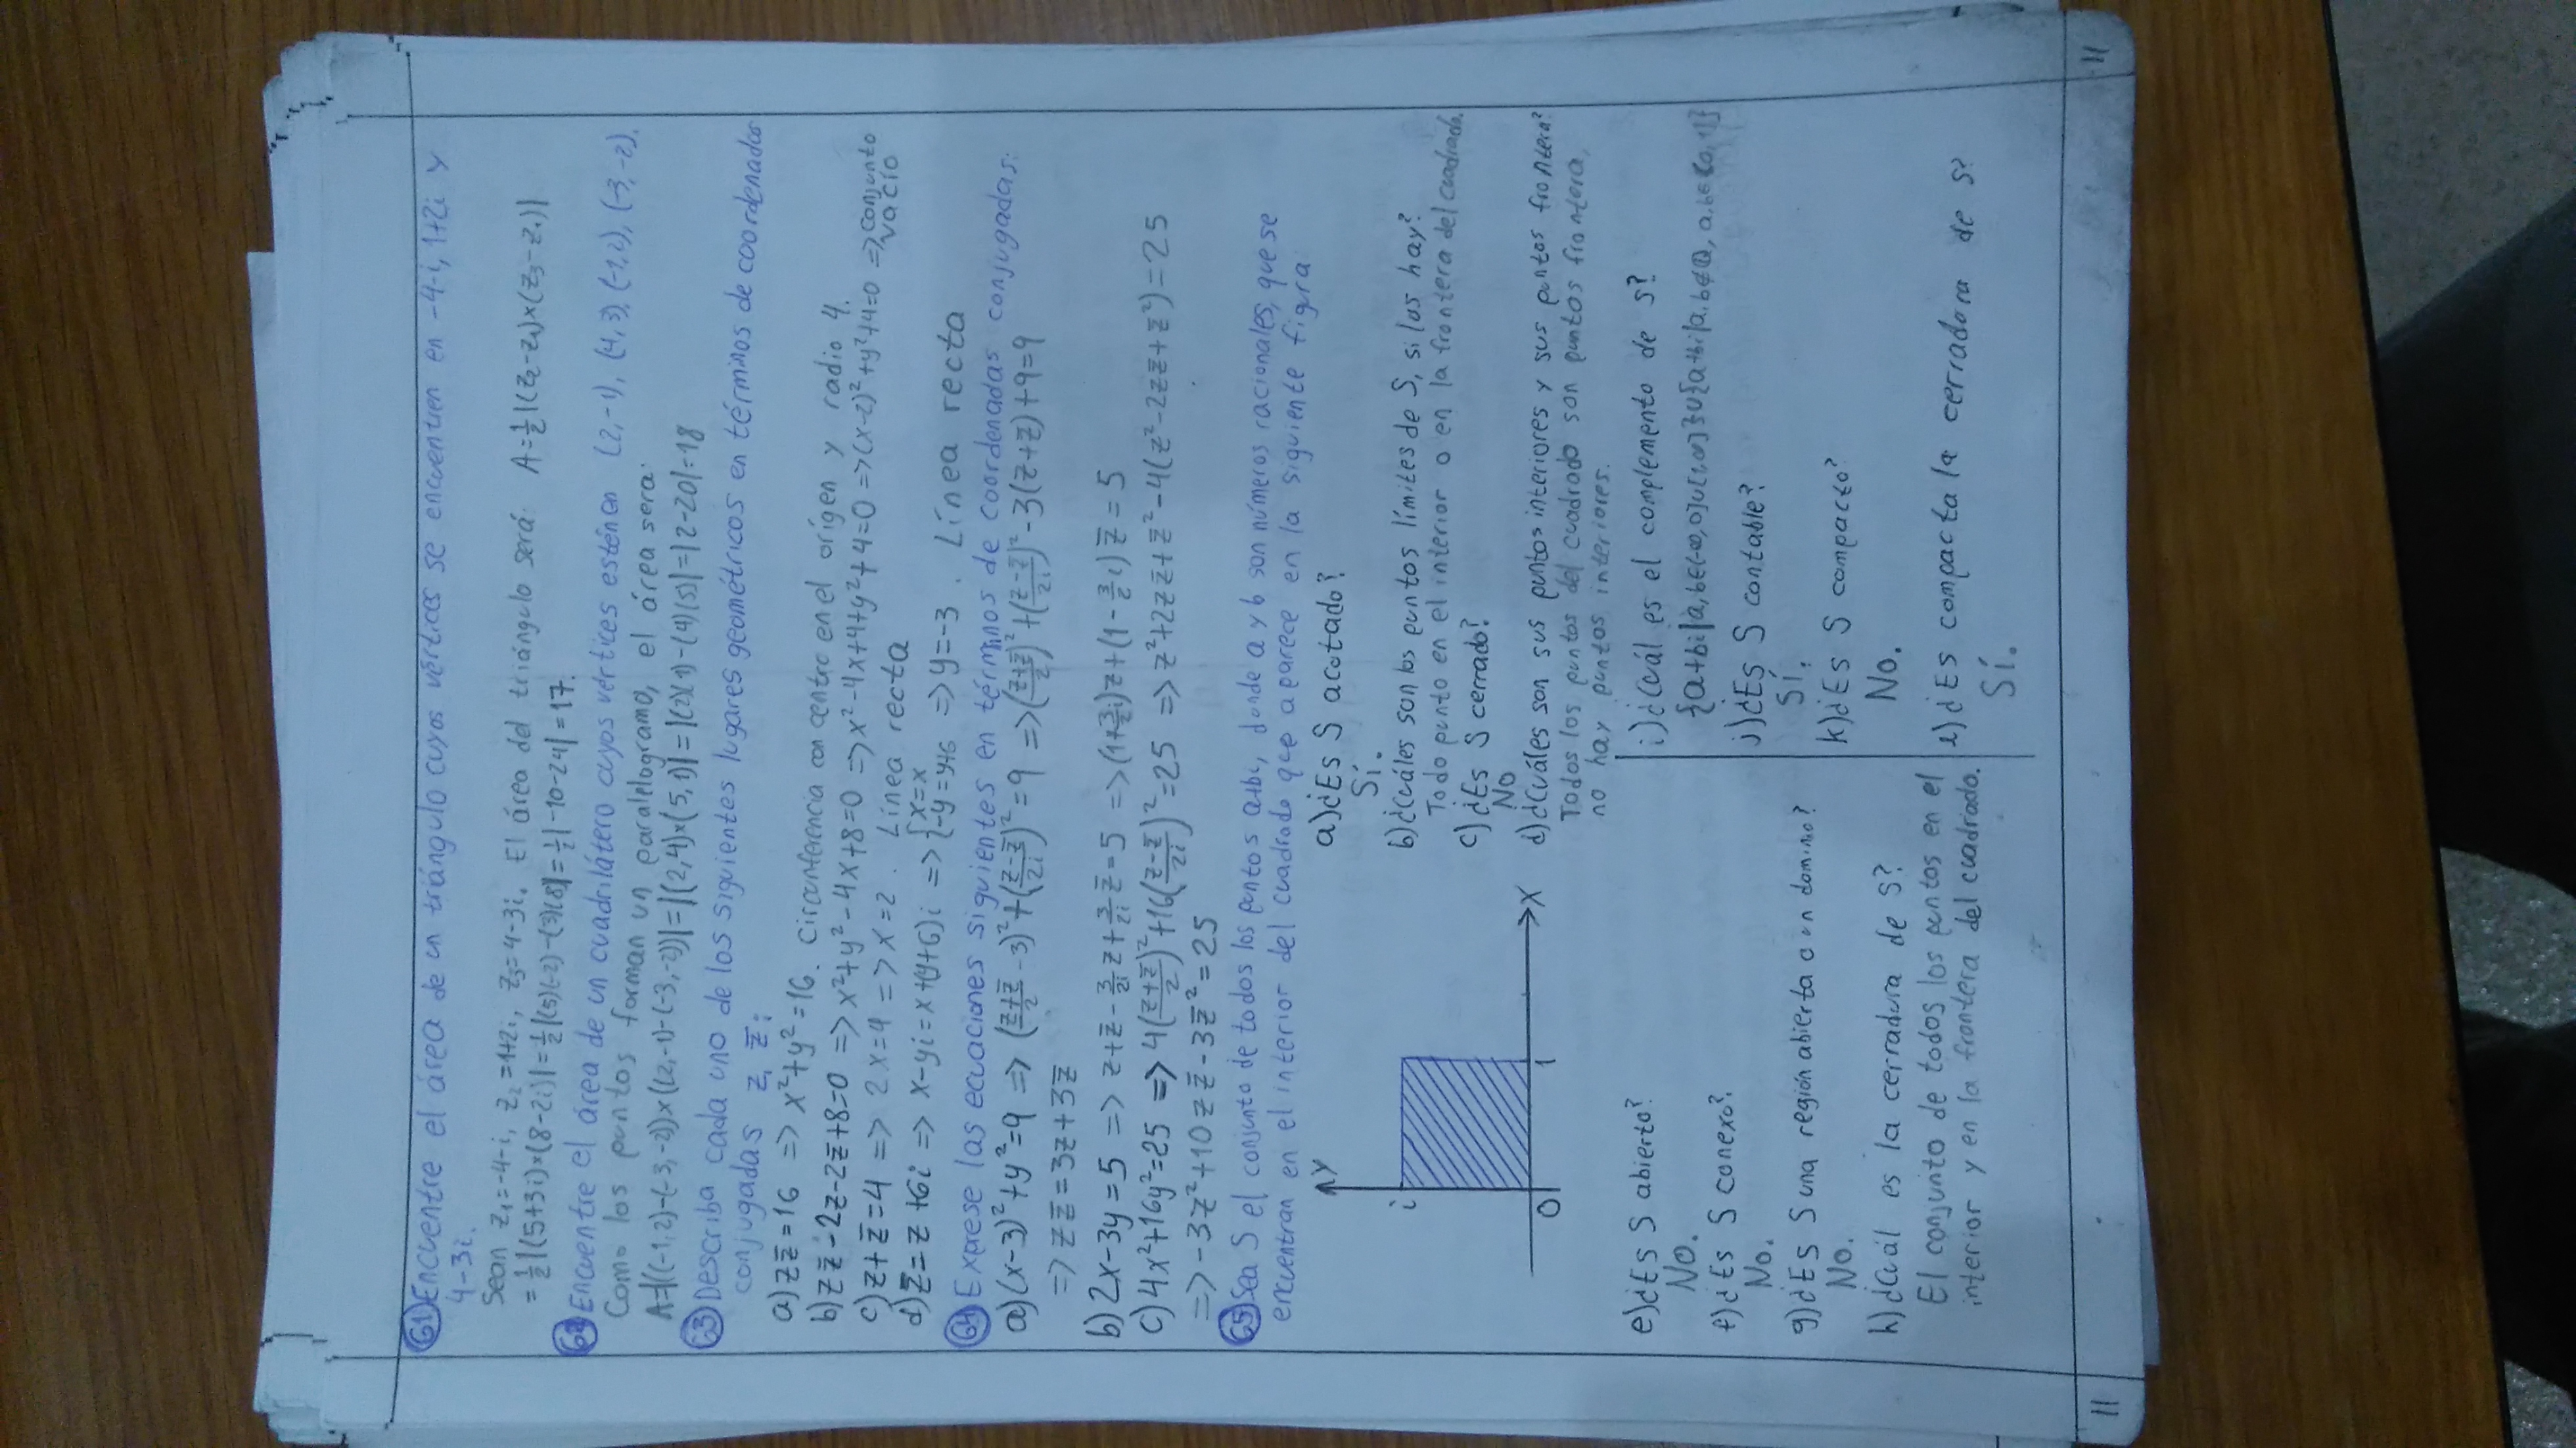 61) Encuentre el área de un triángulo cuyos vértices se encuentren en -4-i, 1+2i y
4-3i.
Sean z₁=-4-i, z₂=1+2i, z₃=4-3i. El área del triángulo será: A=½|(z₂-z₁)×(z₃-z₁)|
=½|(5+3i)×(8-2i)|=½|(5)(-2)-(3)(8)|=½|-10-24|=17.
62) Encuentre el área de un cuadrilátero cuyos vértices estén en (2,-1), (4,3), (-1,2), (-3,-2).
Como los puntos forman un paralelogramo, el área sera:
A=|((-1,2)-(-3,-2))×((2,-1)-(-3,-2))|=|(2,4)×(5,1)|=|(2)(1)-(4)(5)|=|2-20|=18
63) Describa cada uno de los siguientes lugares geométricos en términos de coordenadas
conjugadas z, z̅:
a) zz̅=16 => x²+y²=16. Circunferencia con centro en el origen y radio 4.
b) zz̅-2z-2z̅+8=0 => x²+y²-4x+8=0 => x²-4x+4+y²+4=0 => (x-2)²+y²+4=0 => conjunto
vacío
c) z+z̅=4 => 2x=4 => x=2. Línea recta
d) z̅=z+6i => x-yi=x+(y+6)i => {x=x
-y=y+6 => y=-3. Línea recta
64) Exprese las ecuaciones siguientes en términos de coordenadas conjugadas:
a) (x-3)²+y²=9 => ((z+z̅)/2 -3)²+((z-z̅)/2i)²=9 => ((z+z̅)/2)²+((z-z̅)/2i)²-3(z+z̅)+9=9
=> zz̅=3z+3z̅
b) 2x-3y=5 => z+z̅-3/2i z+3/2i z̅=5 => (1+3/2 i)z+(1-3/2 i)z̅=5
c) 4x²+16y²=25 => 4((z+z̅)/2)²+16((z-z̅)/2i)²=25 => z²+2zz̅+z̅²-4(z²-2zz̅+z̅²)=25
=> -3z²+10zz̅-3z̅²=25
65) Sea S el conjunto de todos los puntos a+bi, donde a y b son números racionales, que se
encuentran en el interior del cuadrado que aparece en la siguiente figura
Y
i
O
1
X
a) ¿Es S acotado?
Sí.
b) ¿Cuáles son los puntos límites de S, si los hay?
Todo punto en el interior o en la frontera del cuadrado.
c) ¿Es S cerrado?
No
d) ¿Cuáles son sus puntos interiores y sus puntos frontera?
Todos los puntos del cuadrado son puntos frontera,
no hay puntos interiores.
e) ¿Es S abierto?
No.
f) ¿Es S conexo?
No.
g) ¿Es S una región abierta o un dominio?
No.
h) ¿Cuál es la cerradura de S?
El conjunto de todos los puntos en el
interior y en la frontera del cuadrado.
i) ¿Cuál es el complemento de S?
{a+bi|a,b∈(-∞,0]∪[1,∞)}∪{a+bi|a,b∉Q, a,b∈
j) ¿Es S contable?
Sí.
k) ¿Es S compacto?
No.
l) ¿Es compacta la cerradura de S?
Sí.
11
11